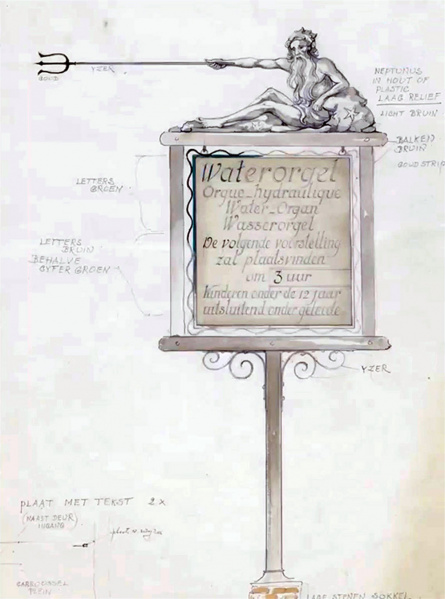 GOUD
YZER
NEPTUNUS
IN HOUT OF
PLASTIC
LAAG RELIEF
LICHT BRUIN
BALKEN
BRUIN
GOUDSTRIP
LETTERS
GROEN
LETTERS
BRUIN
BEHALVE
CYFER GROEN
Waterorgel
Orgue-hydraulique
Water-Organ
Wasserorgel
De volgende voorstelling
zal plaatsvinden
om 3 uur
Kinderen onder de 12 jaar
uitsluitend onder geleide
YZER
PLAAT MET TEKST 2x
(NAAST DEUR)
INGANG
CARROUSSEL
PLEIN
STENEN SOKKEL